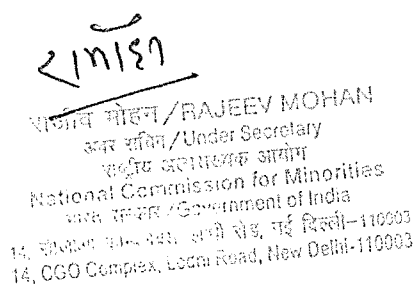 राजीव मोहन/RAJEEV MOHAN
अवर सचिव/Under Secretary
राष्ट्रीय अल्पसंख्यक आयोग
National Commission for Minorities
भारत सरकार/Government of India
14, रोड, नई दिल्ली-110003
14, CGO Complex, Lodhi Road, New Delhi-110003